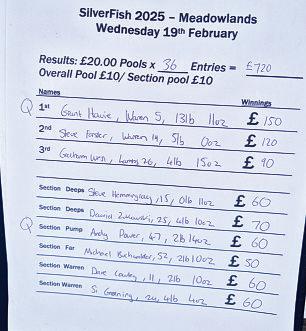 SilverFish 2025 – Meadowlands
Wednesday 19th February
Results: £20.00 Pools x 36 Entries = £720
Overall Pool £10/ Section pool £10
Names Winnings
Q 1st Grant Howie, Warren 5, 13lb 11oz £ 150
2nd Steve Forster, Warren 14, 5lb 0oz £ 120
3rd Graham Wren, Lambs 26, 4lb 15oz £ 90
Section Deeps Steve Hemmingray, 15, 0lb 11oz £ 60
Section Deeps 25, 4lb 10oz £ 70
Q Section Pump Andy Power, 47, 2lb 14oz £ 60
Section Far Michael Buchwalder, 52, 21b 10oz £ 50
Section Warren Dave 11, 2lb 10oz £ 60
Section Warren Si Greening, 24, 4lb 4oz £ 60